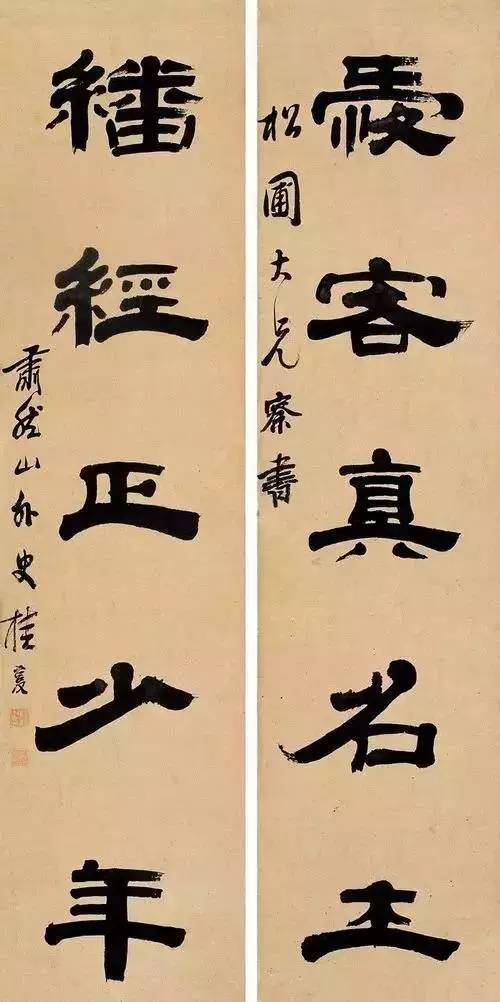 愛客真名士
松圃大兄察書
繙經正少年
肅然山外史桂馥